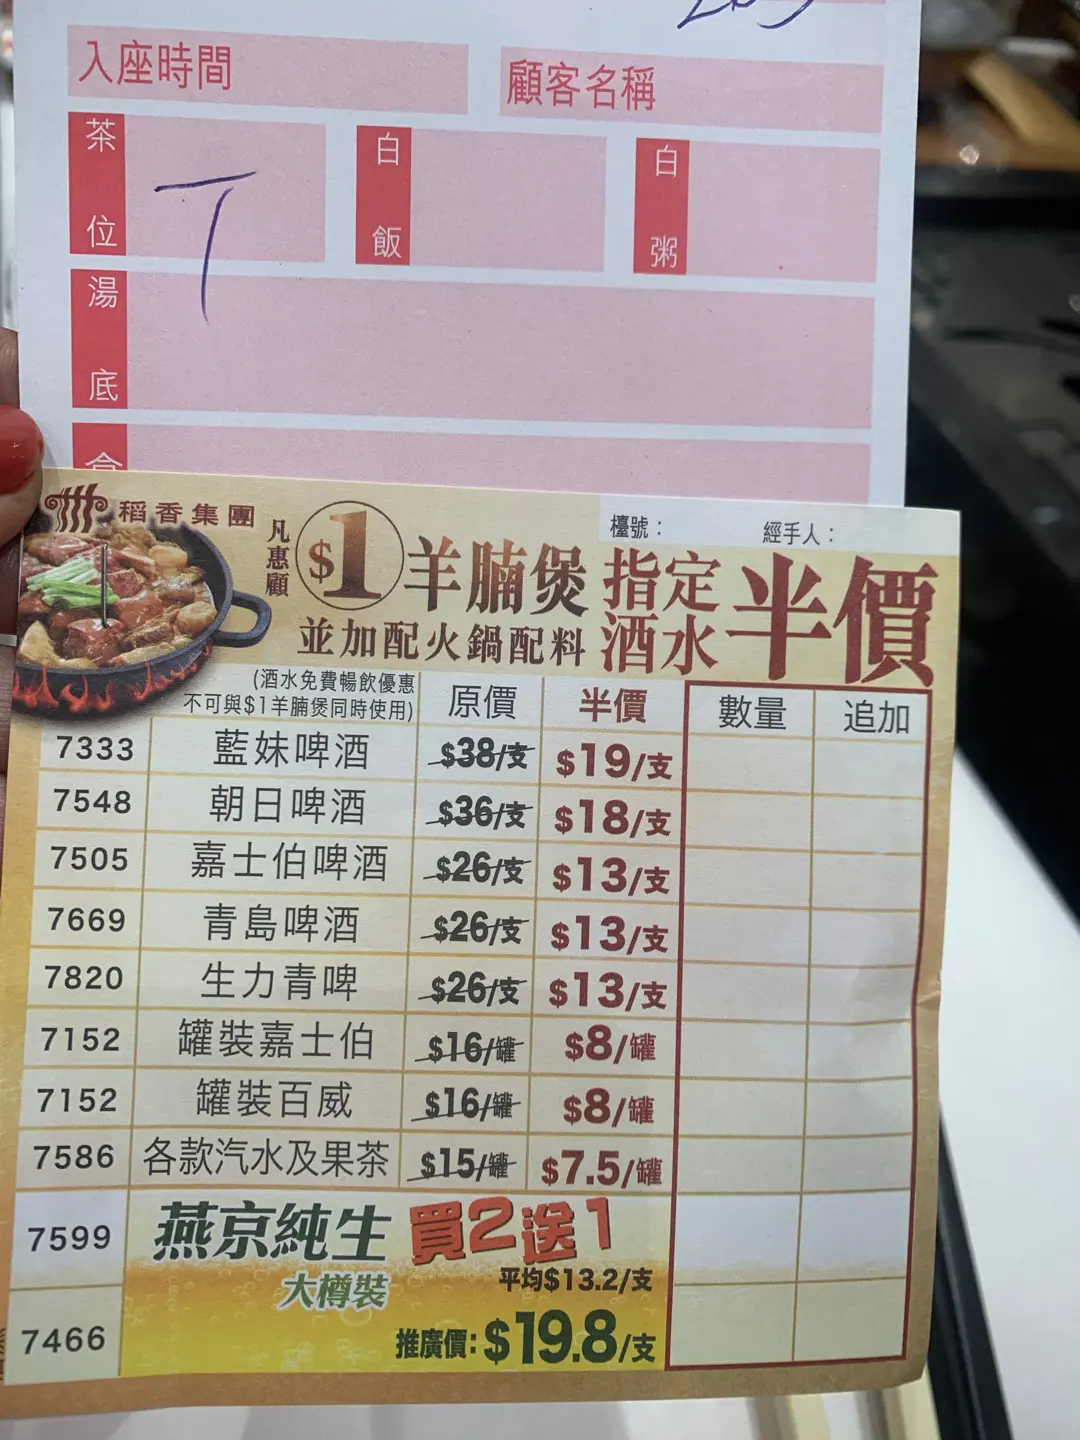 入座時間
顧客名稱
茶位 T
白飯
白粥
湯底
稻香集團
檯號：
經手人：
凡惠顧
$1羊腩煲
並加配火鍋配料
指定酒水
半價
(酒水免費暢飲優惠
不可與$1羊腩煲同時使用)
原價 半價 數量 追加
7333 藍妹啤酒 $38/支 $19/支
7548 朝日啤酒 $36/支 $18/支
7505 嘉士伯啤酒 $26/支 $13/支
7669 青島啤酒 $26/支 $13/支
7820 生力青啤 $26/支 $13/支
7152 罐裝嘉士伯 $16/罐 $8/罐
7152 罐裝百威 $16/罐 $8/罐
7586 各款汽水及果茶 $15/罐 $7.5/罐
7599 燕京純生 買2送1
大樽裝 平均$13.2/支
7466 推廣價：$19.8/支